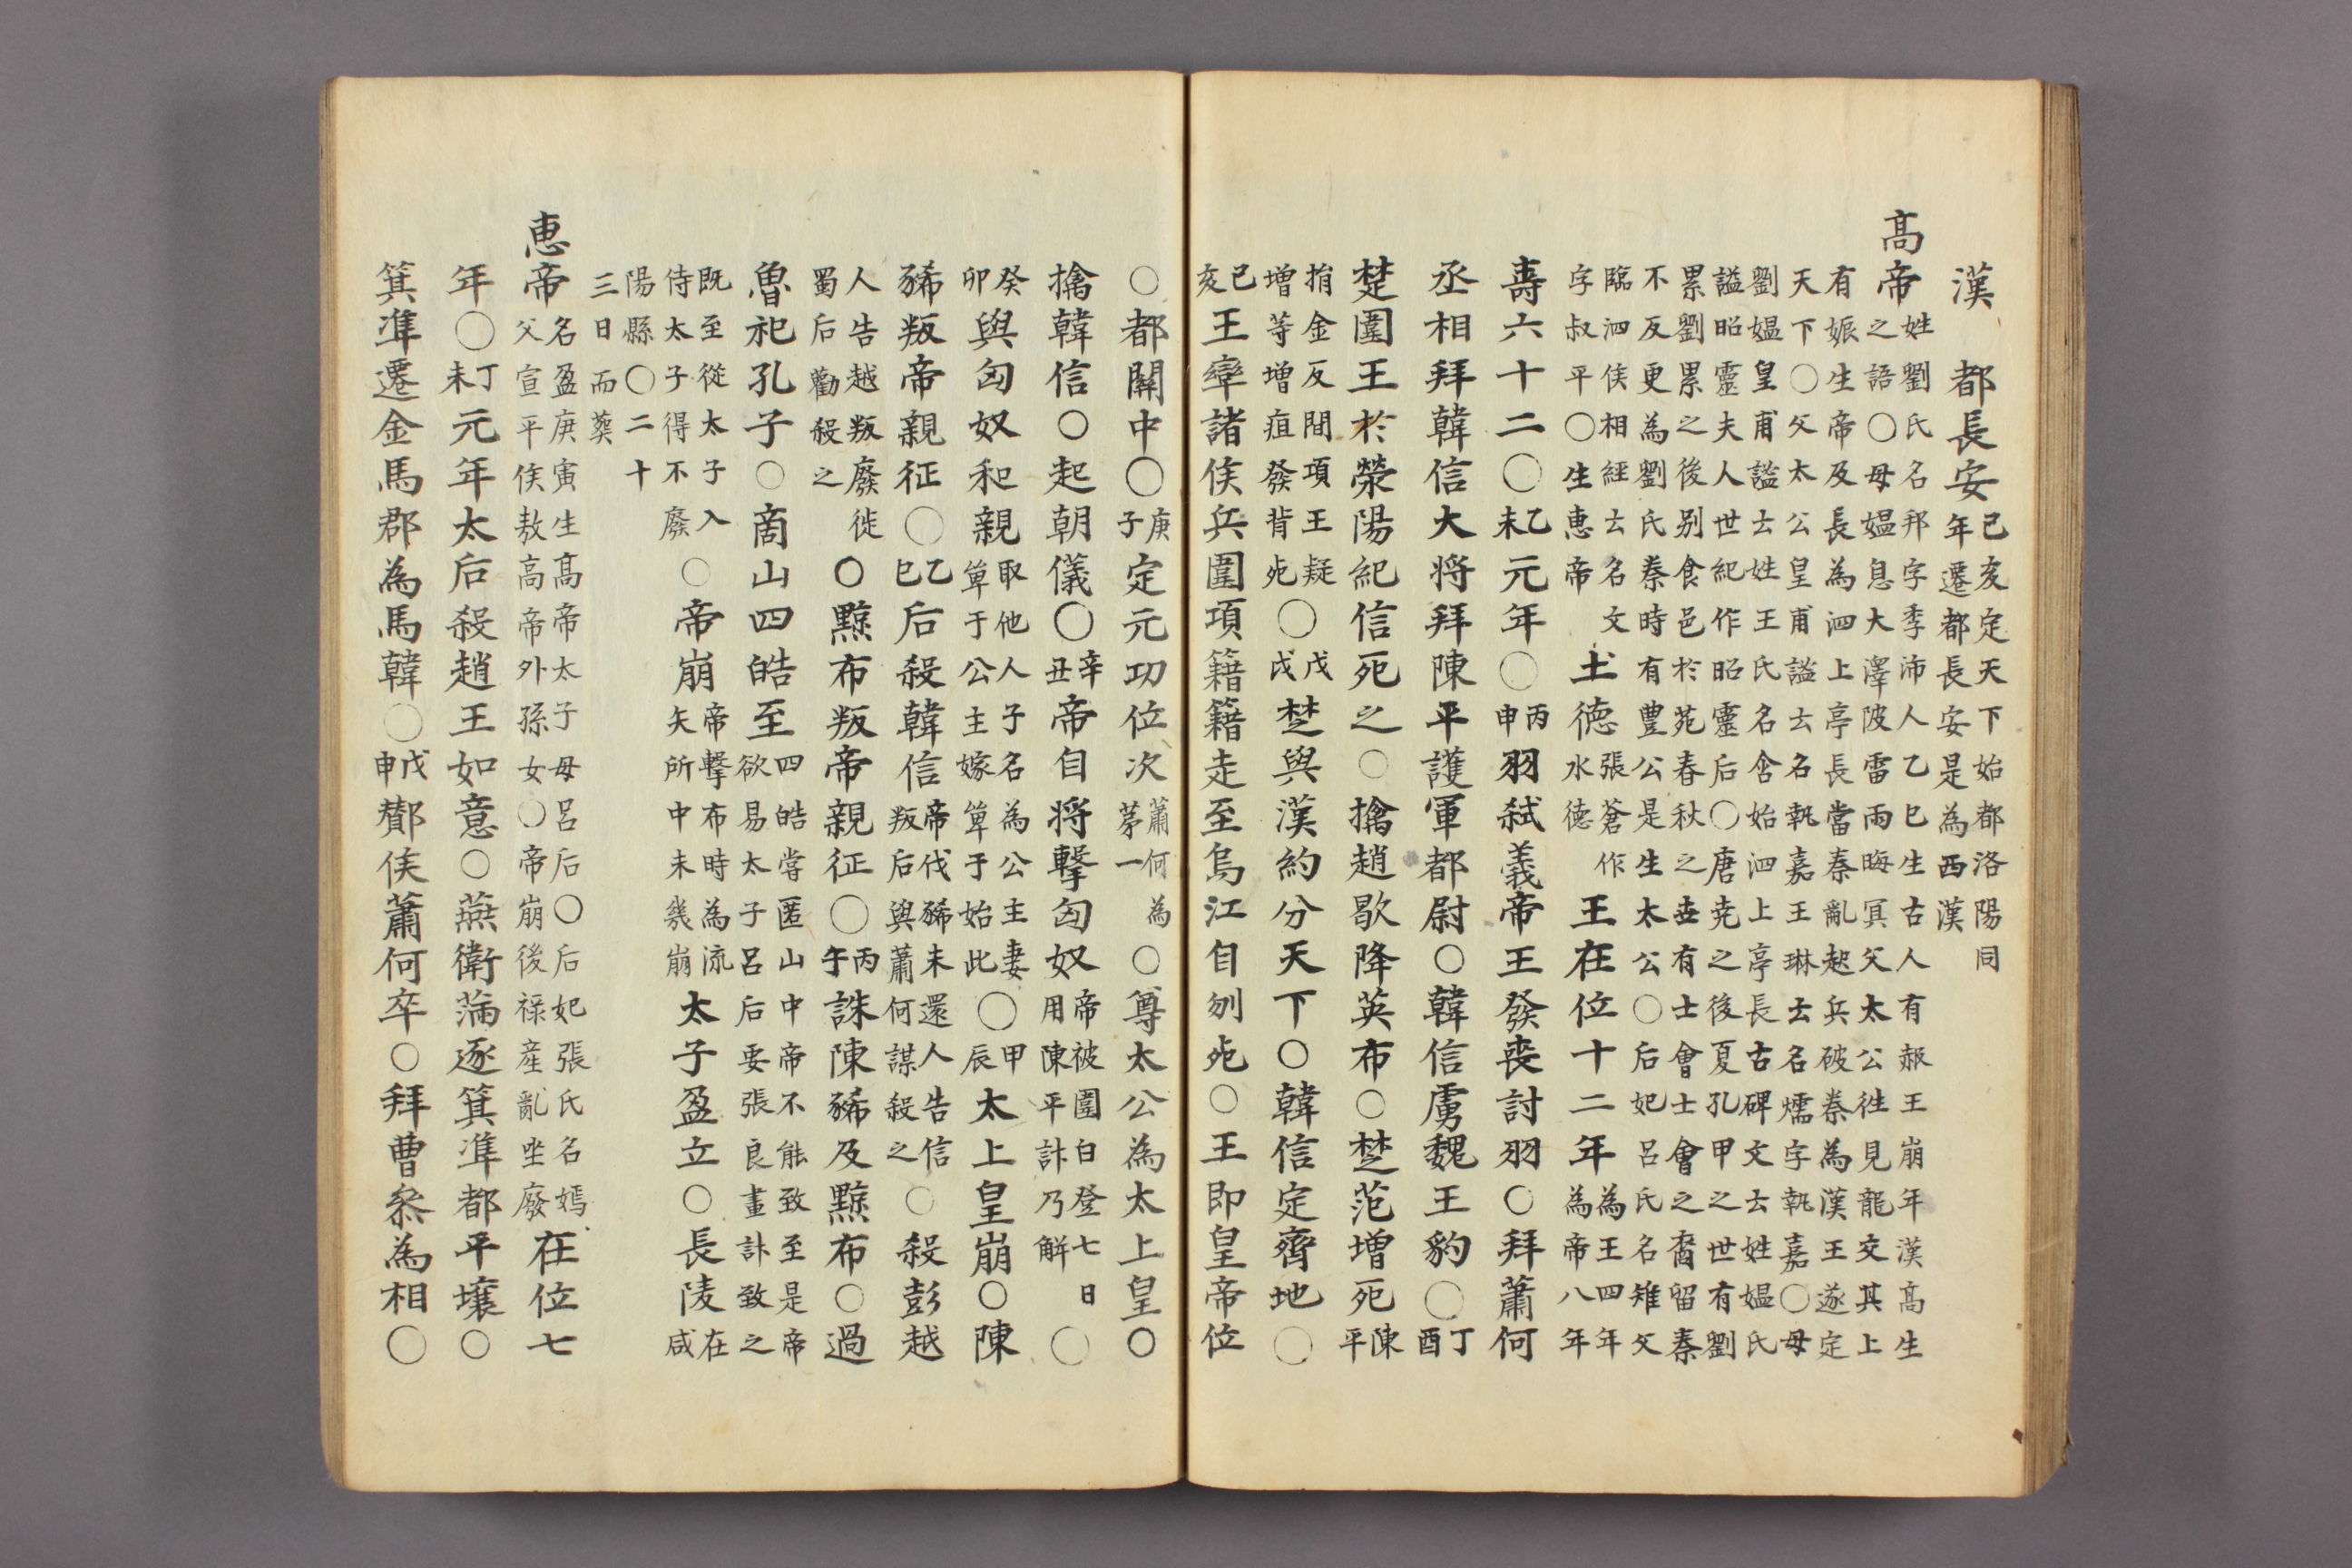 漢 都長安己亥定天下始都洛陽同年遷都長安是為西漢
高帝姓劉氏名邦字季沛人乙巳生古人有赧王崩年漢高生之語○母媼息大澤陂雷雨晦冥父太公徃見龍交其上
有娠生帝及長為泗上亭長當秦亂起兵破秦為漢王遂定天下○父太公皇甫謐云名執嘉王琳云名煓字執嘉○母
劉媼皇甫謐云姓王氏名含始泗上亭長古碑文云姓媼氏謚昭靈夫人世紀作昭靈后○唐尭之後夏孔甲之世有劉
累劉累之後别食邑於范春秋之世有士會士會之裔留秦不反更為劉氏秦時有豊公是生太公○后妃呂氏名雉父
臨泗侯相經云名文字叔平○生恵帝 土徳張蒼作水德 王在位十二年為王四年為帝八年
壽六十二○乙未元年○丙申羽弑義帝王發喪討羽○拜蕭何
丞相拜韓信大将拜陳平護軍都尉○韓信虜魏王豹○丁酉
楚圍王於滎陽紀信死之○擒趙歇降英布○楚范增死陳平
捐金反間項王疑增等增疽發背死○戊戌楚與漢約分天下○韓信定齊地○
己亥王率諸侯兵圍項籍籍走至烏江自刎死○王即皇帝位
○都關中○庚子定元功位次蕭何為苐一○尊太公為太上皇○
擒韓信○起朝儀○辛丑帝自将擊匈奴帝被圍白登七日用陳平計乃解○
癸卯與匈奴和親取他人子名為公主妻單于公主嫁單于始此○甲辰太上皇崩○陳
豨叛帝親征○乙巳后殺韓信帝伐豨未還人告信叛后與蕭何謀殺之○殺彭越
人告越叛廢徙蜀后勸殺之○黥布叛帝親征○丙午誅陳豨及黥布○過
魯祀孔子○商山四皓至四皓嘗匿山中帝不能致至是帝欲易太子呂后要張良畫計致之
既至從太子入侍太子得不廢○帝崩帝擊布時為流矢所中未幾崩太子盈立○長陵在咸
陽縣○二十三日而葬
恵帝名盈庚寅生髙帝太子母呂后○后妃張氏名嫣父宣平侯敖高帝外孫女○帝崩後祿産亂坐廢在位七
年○丁未元年太后殺趙王如意○燕衛滿逐箕準都平壤○
箕準遷金馬郡為馬韓○戊申酇侯蕭何卒○拜曹叅為相○